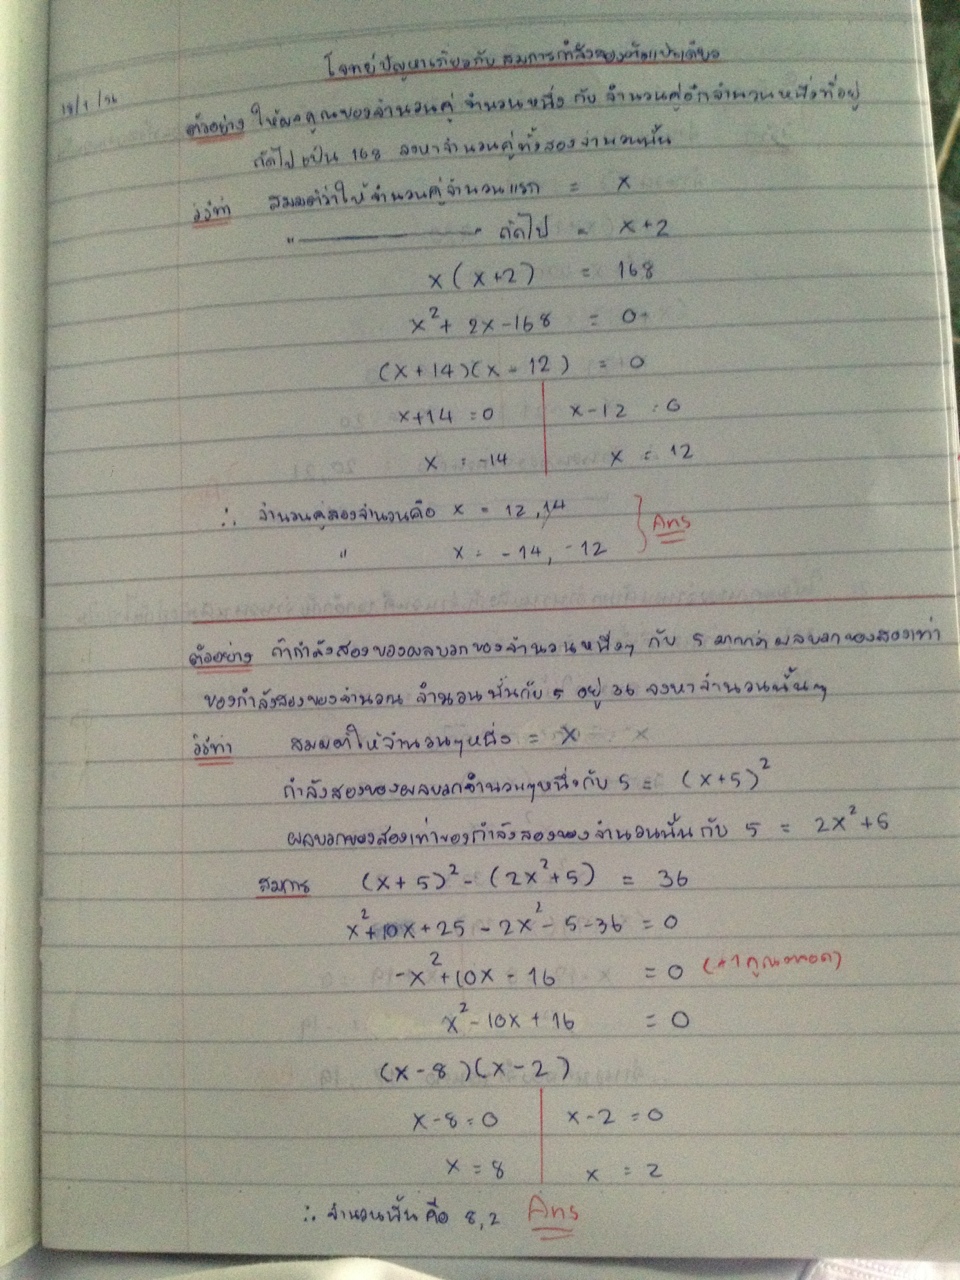 โจทย์ปัญหาเกี่ยวกับ สมการกำลังสองตัวแปรเดียว
ตัวอย่าง ให้ผลคูณของจำนวนคู่ จำนวนหนึ่ง กับ จำนวนคู่อีกจำนวนหนึ่งที่อยู่
ถัดไปเป็น 168 จงหาจำนวนคู่ทั้งสองจำนวนนั้น
วิธีทำ สมมติว่าให้จำนวนคู่จำนวนแรก = x
" ———— " ถัดไป = x+2
x(x+2) = 168
x²+ 2x-168 = 0
(x+14)(x-12) = 0
x+14 = 0 x-12 = 0
x = -14 x = 12
∴ จำนวนคู่สองจำนวนคือ x = 12,14
" x = -14, -12 Ans
ตัวอย่าง ถ้ากำลังสองของผลบวกของจำนวนหนึ่งๆ กับ 5 มากกว่าผลบวกของสองเท่า
ของกำลังสองของจำนวน จำนวนนั้นกับ 5 อยู่ 36 จงหาจำนวนนั้นๆ
วิธีทำ สมมติให้จำนวนๆหนึ่ง = x
กำลังสองของผลบวกจำนวนๆหนึ่งกับ 5 = (x+5)²
ผลบวกของสองเท่าของกำลังสองของจำนวนนั้นกับ 5 = 2x²+5
สมการ (x+5)²-(2x²+5) = 36
x²+10x+25-2x²-5-36 = 0
-x²+10x-16 = 0
x²-10x+16 = 0
(x-8)(x-2)
x-8=0 x-2=0
x=8 x = 2
∴ จำนวนนั้นคือ 8,2 Ans